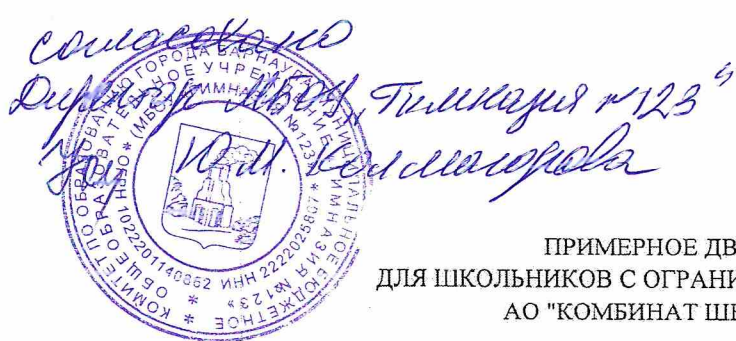 согласовано
Директор МБОУ "Гимназия №123"
Ю.М. Колмогорова
КОМИТЕТ ПО ОБРАЗОВАНИЮ ГОРОДА БАРНАУЛА
МУНИЦИПАЛЬНОЕ БЮДЖЕТНОЕ
ОБЩЕОБРАЗОВАТЕЛЬНОЕ УЧРЕЖДЕНИЕ
ГИМНАЗИЯ №123
ИНН
ПРИМЕРНОЕ ДВ
ДЛЯ ШКОЛЬНИКОВ С ОГРАНИ
АО "КОМБИНАТ ШК